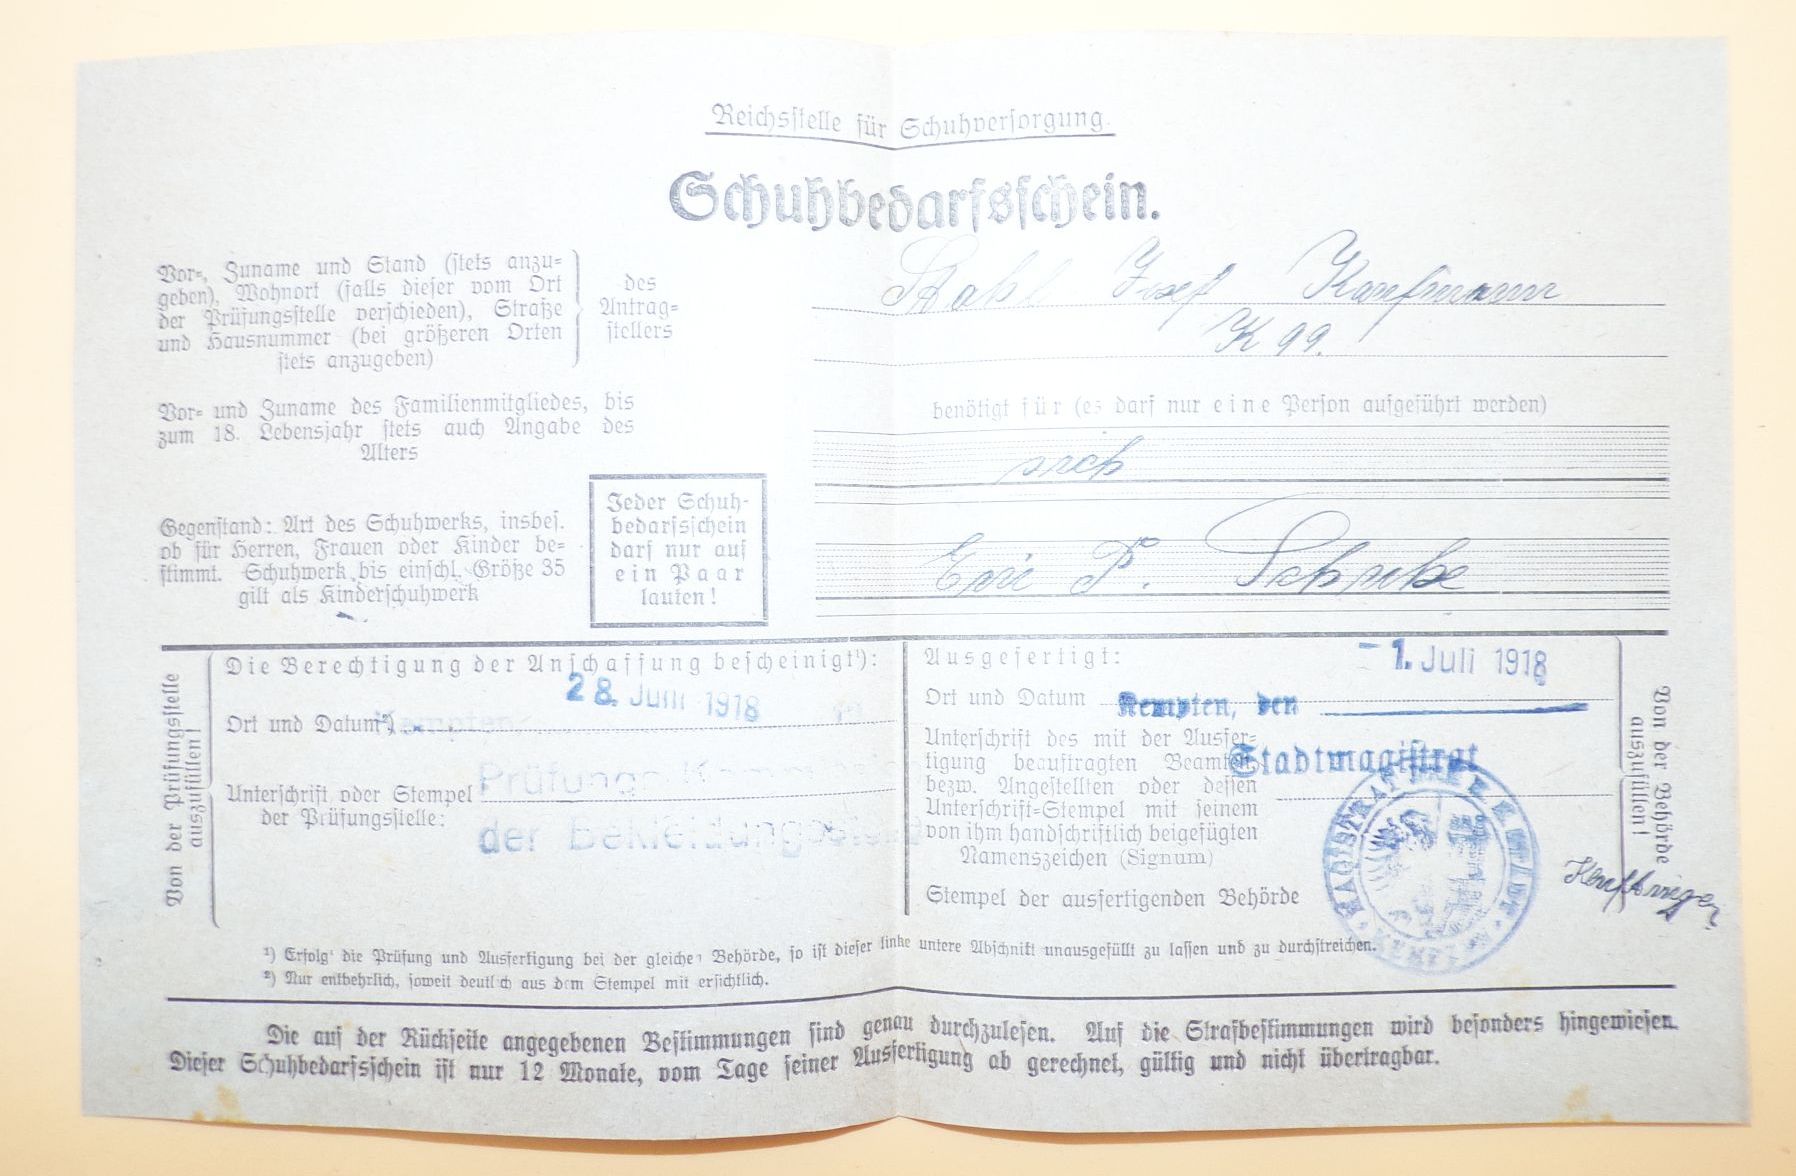 Reichsstelle für Schuhversorgung.
Schuhbedarfsschein.
Vor-, Zuname und Stand (stets anzu-
geben), Wohnort (falls dieser vom Ort
der Prüfungsstelle verschieden), Straße
und Hausnummer (bei größeren Orten
stets anzugeben)
des
Antrag-
stellers
Stahl Josef Kaufmann
K 99.
Vor- und Zuname des Familienmitgliedes, bis
zum 18. Lebensjahr stets auch Angabe des
Alters
benötigt für (es darf nur eine Person aufgeführt werden)
sich
Gegenstand: Art des Schuhwerks, insbes.
ob für Herren, Frauen oder Kinder be-
stimmt. Schuhwerk bis einschl. Größe 35
gilt als Kinderschuhwerk
Jeder Schuh-
bedarfsschein
darf nur auf
ein Paar
lauten!
Ein P. Schuhe
Von der Prüfungsstelle
auszufüllen!
Die Berechtigung der Anschaffung bescheinigt¹):
28. Juni 1918
Ort und Datum²) Kempten
Prüfungs
Unterschrift oder Stempel
der Prüfungsstelle:
der Bekleidungsstelle
Ausgefertigt:
- 1. Juli 1918
Ort und Datum Kempten, den
Unterschrift des mit der Ausfer-
tigung beauftragten Beamten,
bezw. Angestellten oder dessen
Unterschrift-Stempel mit seinem
von ihm handschriftlich beigefügten
Namenszeichen (Signum)
Stadtmagistrat
Stempel der ausfertigenden Behörde
MAGISTRAT DER K. B. STADT KEMPTEN
Von der Behörde
auszufüllen!
¹) Erfolgt die Prüfung und Ausfertigung bei der gleichen Behörde, so ist dieser linke untere Abschnitt unausgefüllt zu lassen und zu durchstreichen.
²) Nur entbehrlich, soweit deutlich aus dem Stempel mit ersichtlich.
Die auf der Rückseite angegebenen Bestimmungen sind genau durchzulesen. Auf die Strafbestimmungen wird besonders hingewiesen.
Dieser Schuhbedarfsschein ist nur 12 Monate, vom Tage seiner Ausfertigung ab gerechnet, gültig und nicht übertragbar.